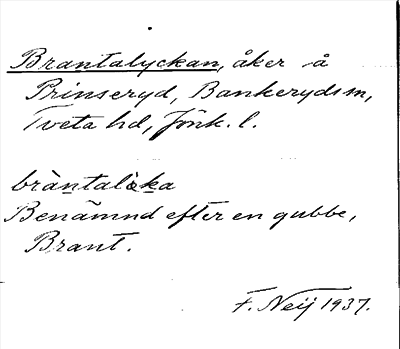 Brantalyckan, åker å
Prinseryd, Bankeryds sn,
Tveta hd, Jönk. l.
bràntalỳka
Benämnd efter en gubbe,
Brant.
F. Neij 1937.